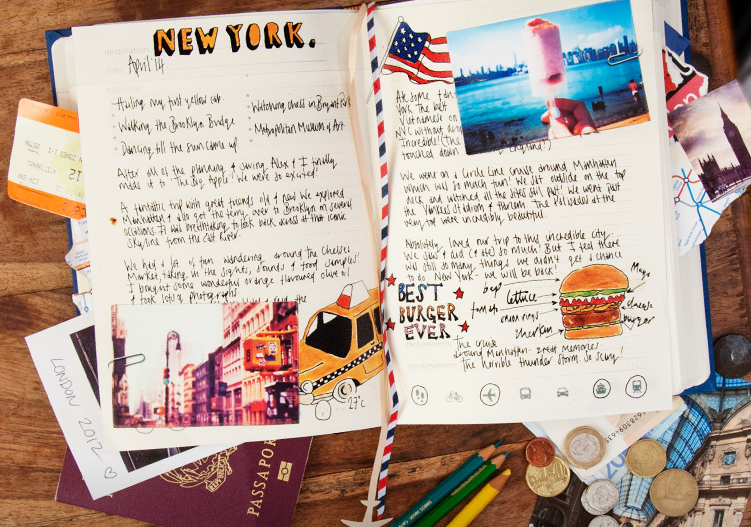 destination
NEW YORK.
date
April '14
Hailing my first yellow cab
Walking the Brooklyn Bridge
Dancing till the sun came up
Watching chess in Bryant Park
Metropolitan Museum of Art
After all of the planning & saving, Alex & I finally
made it to 'The Big Apple'! We were so excited!
A fantastic trip with great friends old & new. We explored
Manhattan & also got the ferry over to Brooklyn on several
occasions. It was breathtaking to look back across at that iconic
skyline from the East River.
We had a lot of fun wandering around the Chelsea
Market, taking in the sights, sounds & food samples!
I bought some wonderful orange flavoured olive oil
& took lots of photographs
27°c
At some
York. The best
Vietnamese
NYC without
Incredible! (The
touched down
We went on a Circle Line cruise around Manhattan
which was so much fun! We sat outside on the top
deck and watched all the sites sail past! We went past
the Yankee Stadium & Harlem. The Palisades at the
very top were incredibly beautiful.
Absolutely loved our trip to this incredible city.
We saw & did (& ate) so much! But I feel there
was still so many things we didn't get a chance
to do. New York - we will be back!
BEST
BURGER
EVER
lettuce
onion rings
gherkin
Mayo
cheese
burger
The cruise
around Manhattan - great memories.
The horrible thunder storm. So scary!
LONDON 2012
PASSAPORTE